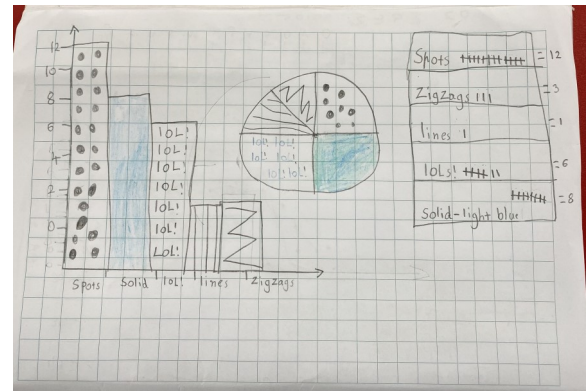 12
10
8
6
4
2
0
LOL!
LOL!
LOL!
LOL!
LOL!
LOL!
LOL!
Spots
Solid
LOL!
lines
Zigzags
lol! lol!
lol! lol!
lol! lol!
Spots = 12
Zigzags III = 3
lines I = 1
lOLs! = 6
= 8
Solid-light blue